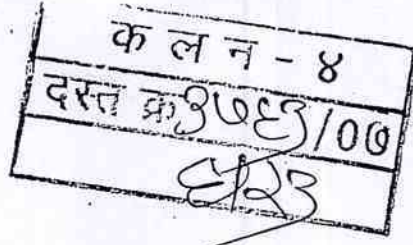 क ल न - ४
दस्त क्र३७६३/०७
६/२३